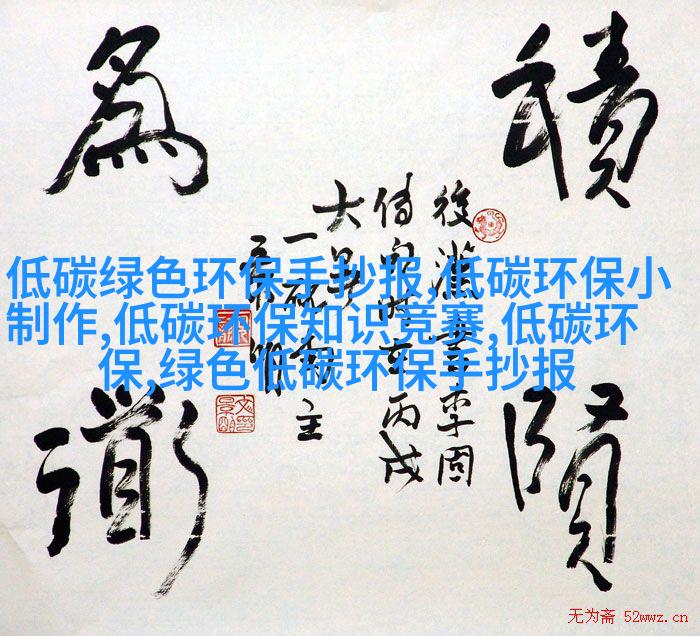 積賢
為衜
後漢書李固
低碳绿色环保手抄报,低碳环保小
制作,低碳环保知识竞赛,低碳环
保,绿色低碳环保手抄报
无为斋 52wwz.cn